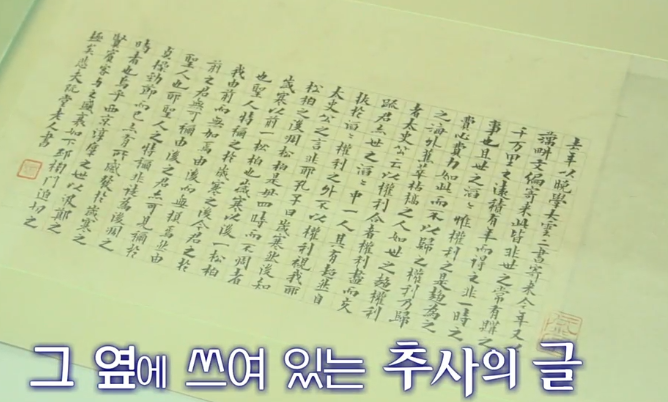 去年以晚學大雲二書寄來今年又以
藕畊文編寄來此皆非世之常有購之
千万里之遠積有年而得之非一時之
事也且世之滔〻惟權利之是趨爲之
費心費力如此而不以歸之權利乃歸
之海外蕉萃枯槁之人如世之趨權利
者太史公云以權利合者權利盡而交
踈君亦世之滔〻中一人其有超然自
拔於滔〻權利之外不以權利視我耶
太史公之言非耶孔子曰歲寒然後知
松柏之後凋松柏是毋四時而不凋者
歲寒以前一松柏也歲寒以後一松柏
也聖人特稱之於歲寒之後今君之於
我由前而無加焉由後而無損焉然由
前之君無可稱由後之君亦可見稱於
聖人也耶聖人之特稱非徒爲後凋之
貞操勁節而已亦有所感發於歲寒之
時者也烏乎西京淳厖之世以汲鄭之
賢賓客與之盛衰如下邳榜門迫切之
極矣悲夫阮堂老人書
그 옆에 쓰여 있는 추사의 글